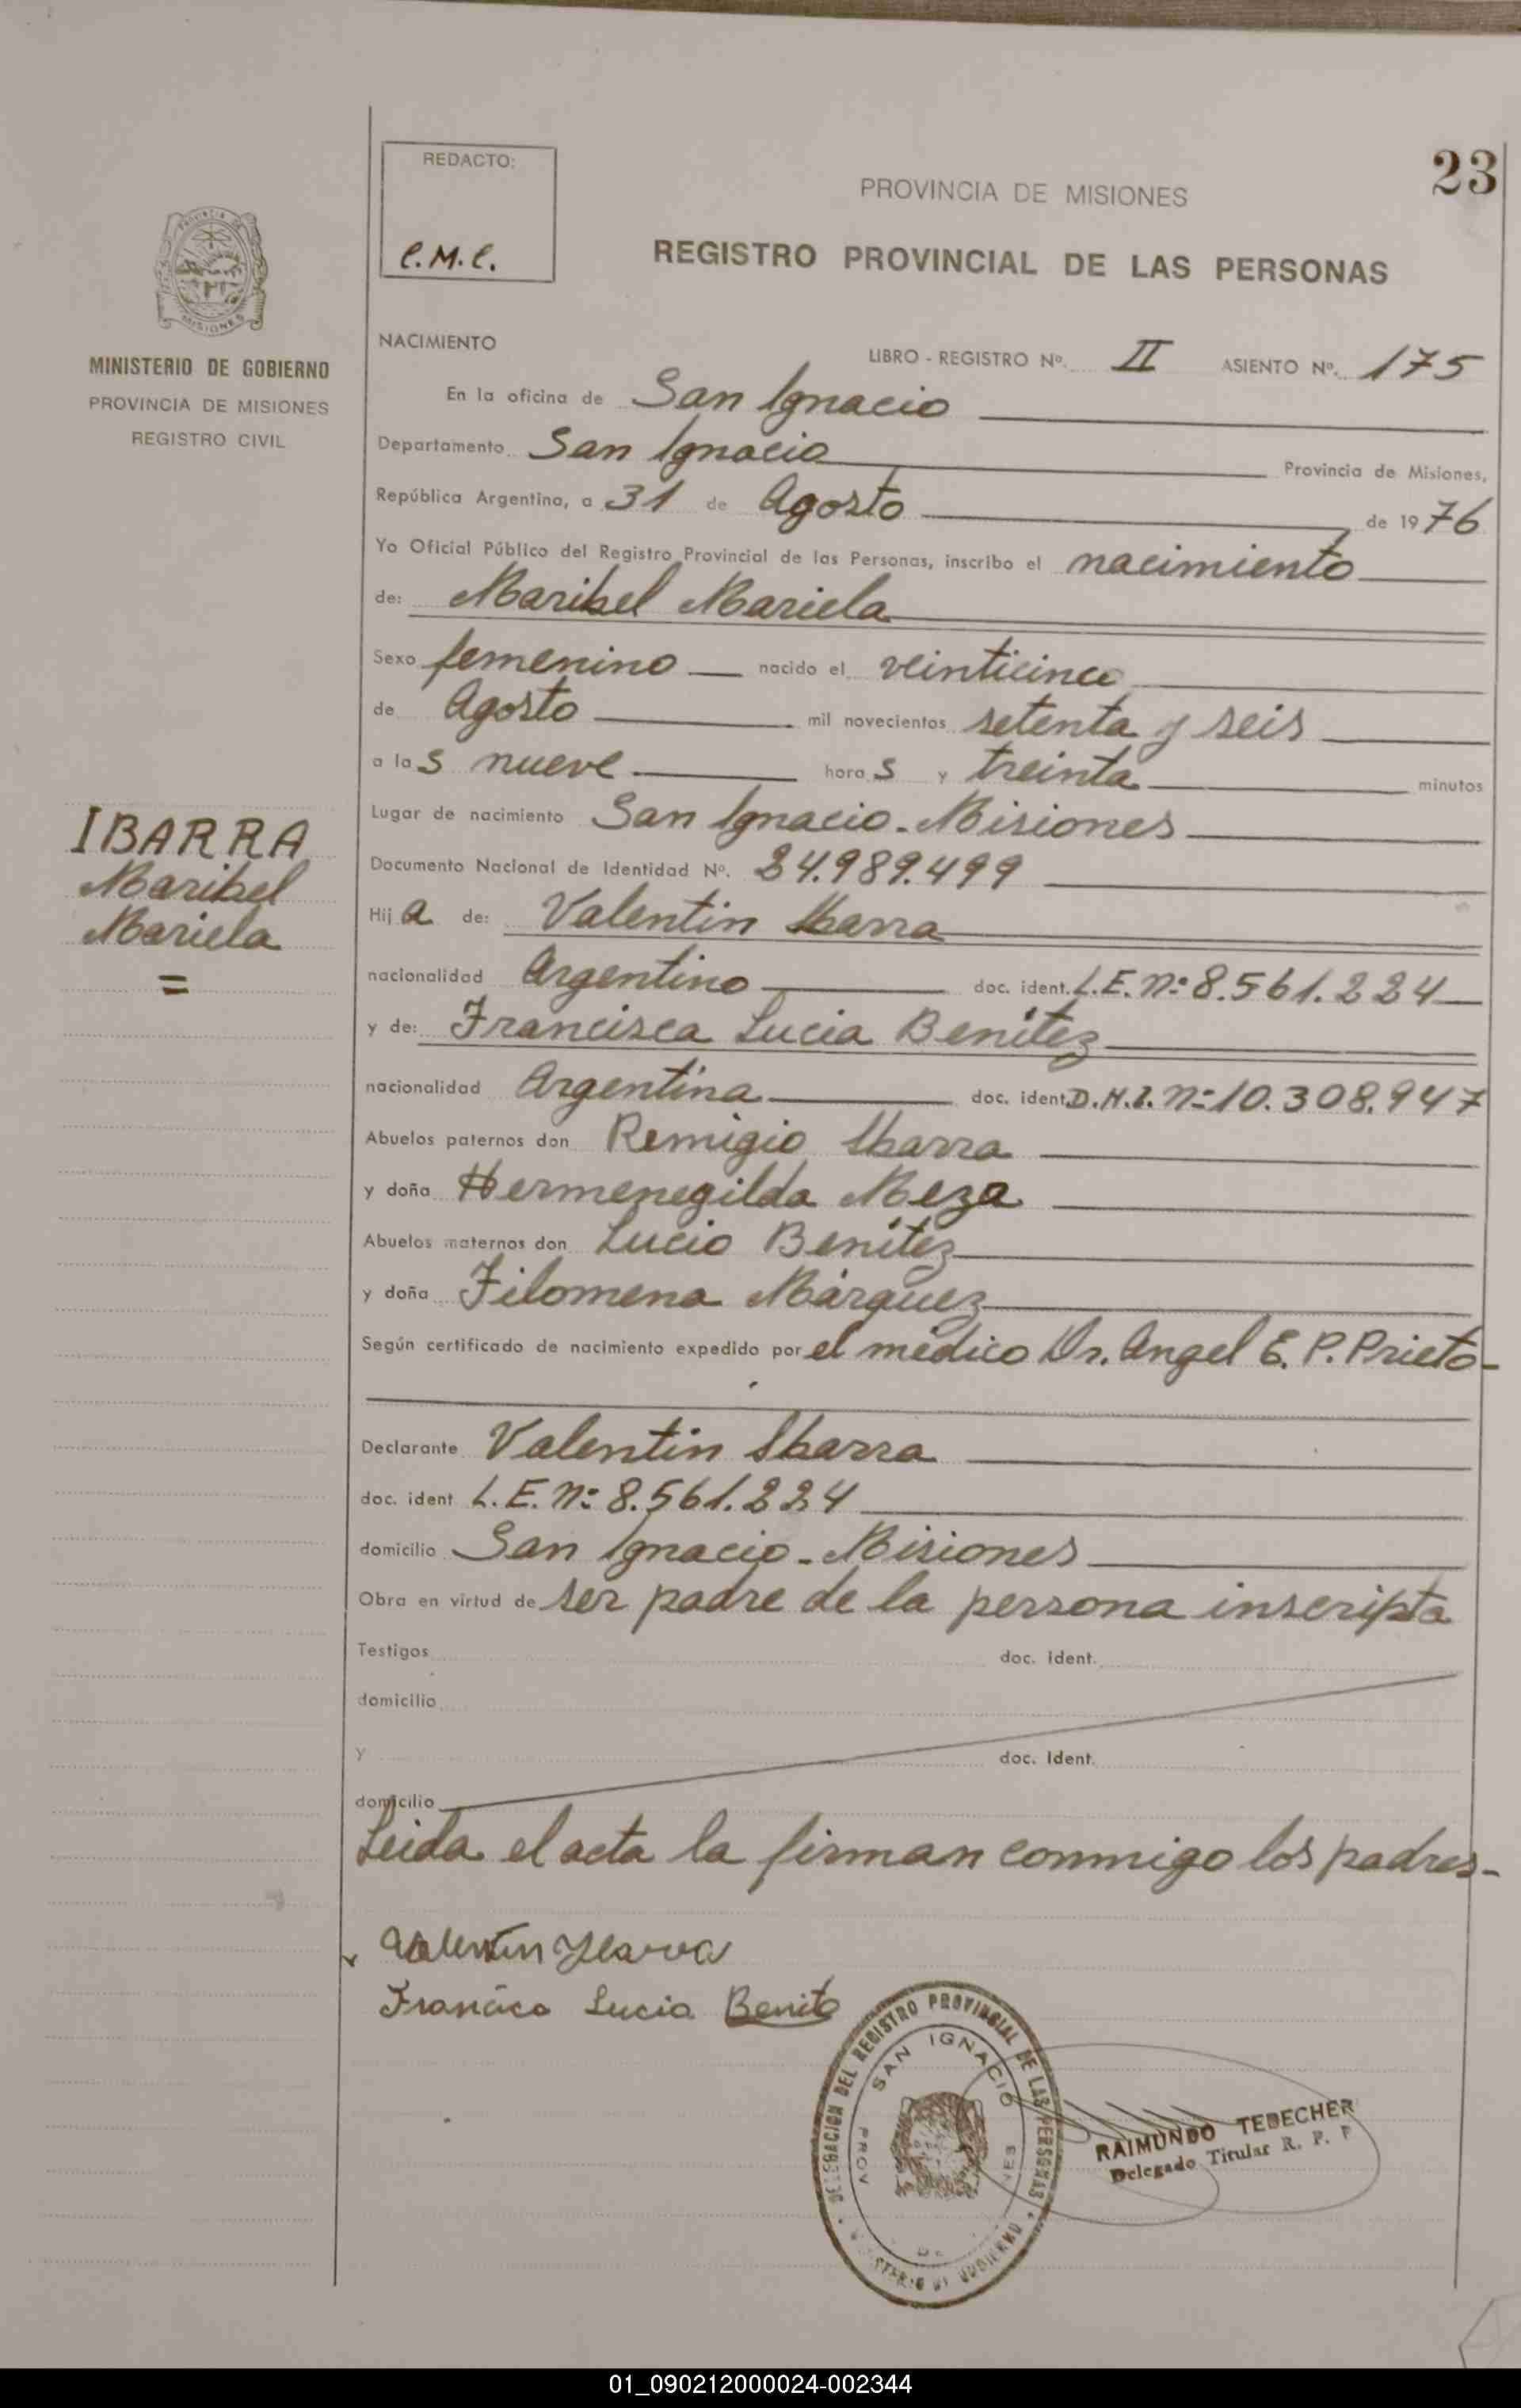 23
REDACTO:
C.M.C.
PROVINCIA DE MISIONES
REGISTRO PROVINCIAL DE LAS PERSONAS
MISIONES
MINISTERIO DE GOBIERNO
PROVINCIA DE MISIONES
REGISTRO CIVIL
IBARRA
Maribel
Mariela
=
NACIMIENTO
LIBRO - REGISTRO Nº. II ASIENTO Nº. 175
En la oficina de San Ignacio
Departamento San Ignacio Provincia de Misiones,
República Argentina, a 31 de Agosto de 1976
Yo Oficial Público del Registro Provincial de las Personas, inscribo el nacimiento
de: Maribel Mariela
Sexo femenino nacido el veinticinco
de Agosto mil novecientos setenta y seis
a las nueve horas y treinta minutos
Lugar de nacimiento San Ignacio - Misiones
Documento Nacional de Identidad Nº. 24.989.499
Hija de: Valentin Ibarra
nacionalidad Argentino doc. ident. L.E. Nº 8.561.224
y de: Francisca Lucia Benitez
nacionalidad Argentina doc. ident. D.N.I. Nº 10.308.947
Abuelos paternos don Remigio Ibarra
y doña Hermenegilda Meza
Abuelos maternos don Lucio Benitez
y doña Filomena Márquez
Según certificado de nacimiento expedido por el médico Dr. Angel E. P. Prieto-
Declarante Valentin Ibarra
doc. ident L.E. Nº 8.561.224
domicilio San Ignacio - Misiones
Obra en virtud de ser padre de la persona inscripta
Testigos doc. ident.
domicilio
y doc. Ident.
domicilio
Leida el acta la firman conmigo los padres-
Valentin Ybarra
Francisca Lucia Benite
DELEGACION DEL REGISTRO PROVINCIAL DE LAS PERSONAS
SAN IGNACIO
PROV DE NES
RAIMUNDO TEBECHER
Delegado Titular R. P. P
01_090212000024-002344